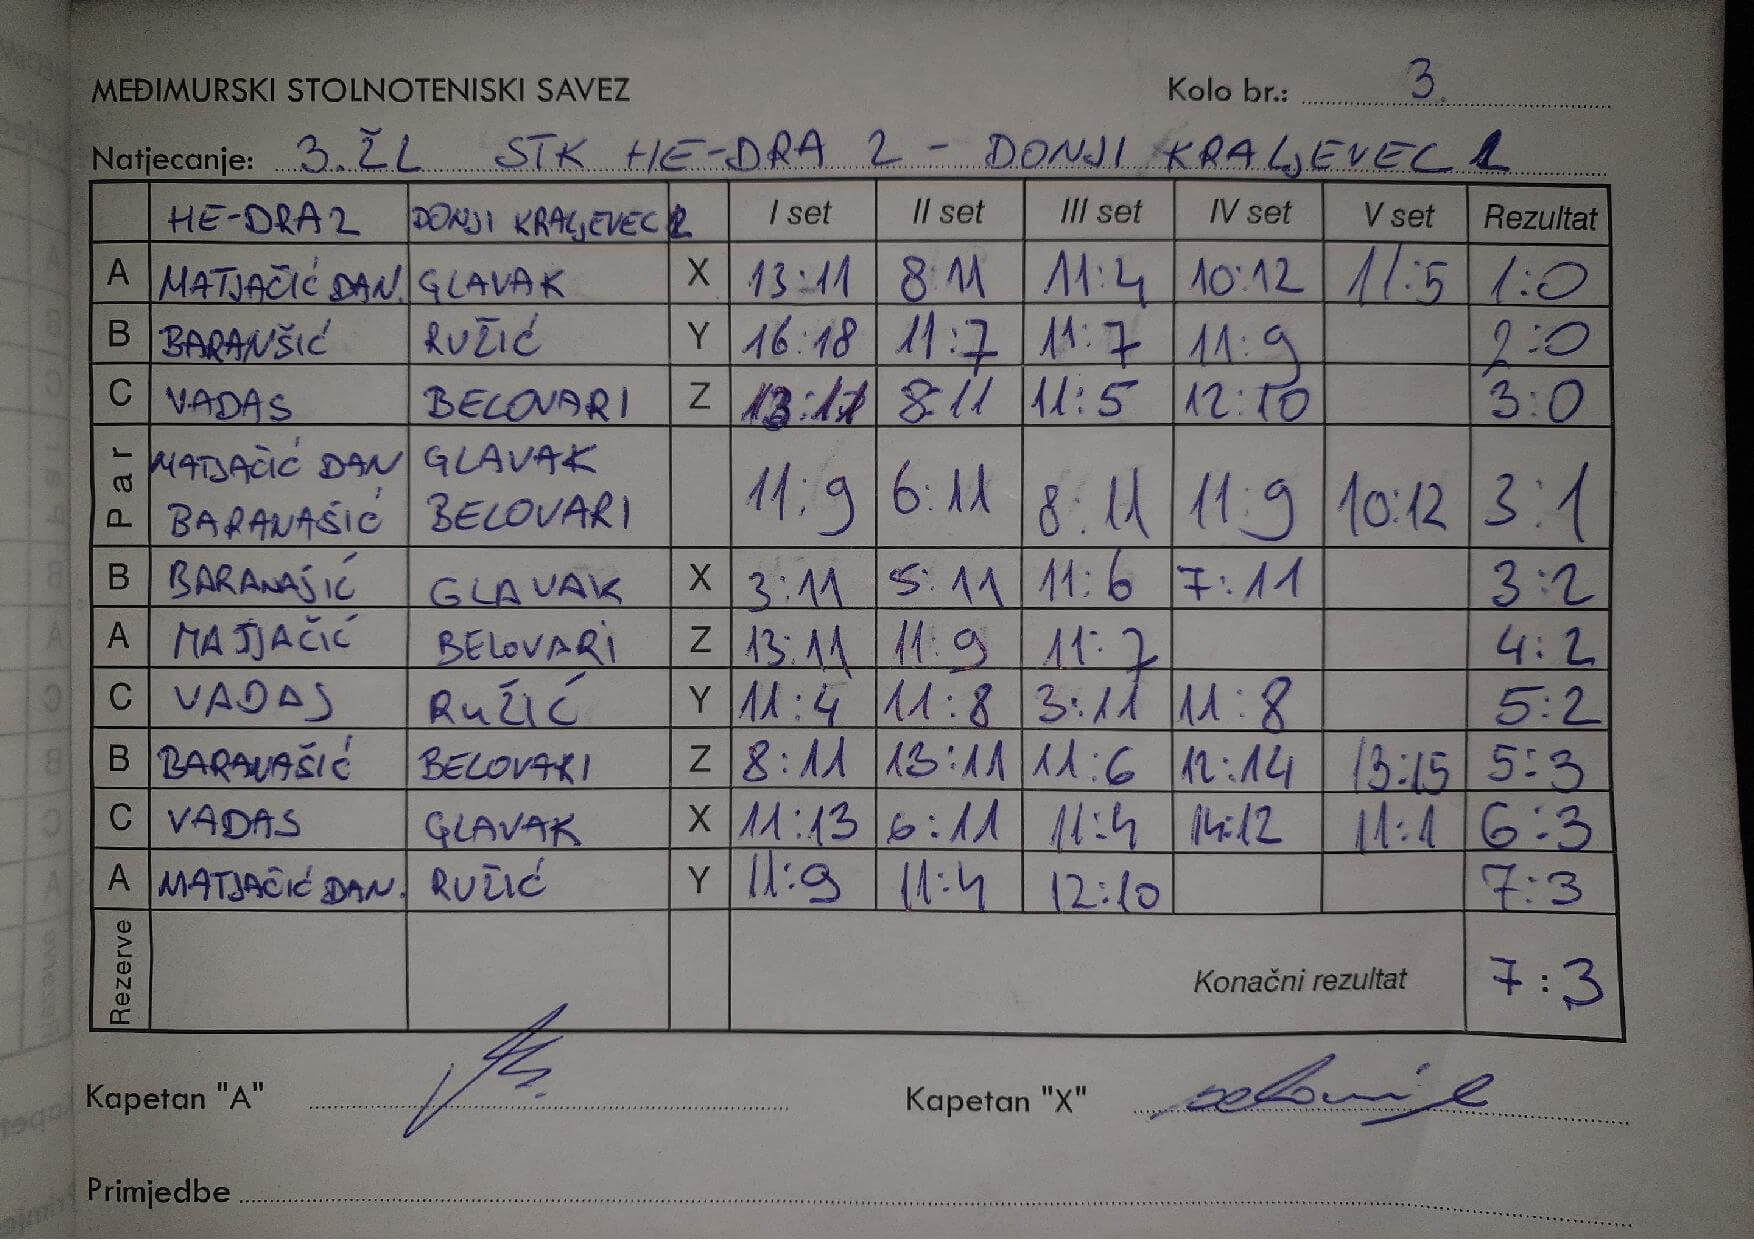 MEĐIMURSKI STOLNOTENISKI SAVEZ Kolo br.: 3.
Natjecanje: 3.ŽL STK HE-DRA 2 - DONJI KRALJEVEC
HE-DRA 2 DONJI KRALJEVEC I set II set III set IV set V set Rezultat
A MATJAČIĆ DAN. GLAVAK X 13:11 8:11 11:4 10:12 11:5 1:0
B BARANŠIĆ RUŽIĆ Y 16:18 11:7 11:7 11:9 2:0
C VADAS BELOVARI Z 13:11 8:11 11:5 12:10 3:0
Par MATJAČIĆ DAN GLAVAK
BARANAŠIĆ BELOVARI 11:9 6:11 8:11 11:9 10:12 3:1
B BARANAŠIĆ GLAVAK X 3:11 5:11 11:6 7:11 3:2
A MATJAČIĆ BELOVARI Z 13:11 11:9 11:7 4:2
C VADAS RUŽIĆ Y 11:4 11:8 3:11 11:8 5:2
B BARANAŠIĆ BELOVARI Z 8:11 13:11 11:6 12:14 13:15 5:3
C VADAS GLAVAK X 11:13 6:11 11:4 14:12 11:1 6:3
A MATJAČIĆ DAN. RUŽIĆ Y 11:9 11:4 12:10 7:3
Rezerve Konačni rezultat 7:3
Kapetan "A" Kapetan "X"
Primjedbe